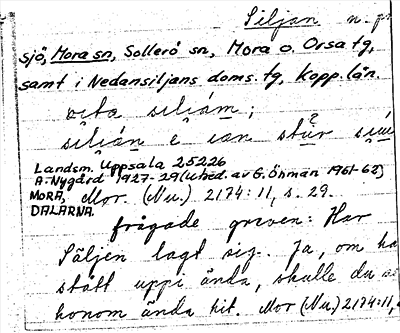 Siljan n. pr
sjö, Mora sn, Sollerö sn, Mora o. Orsa tg,
samt i Nedansiljans doms. tg, Kopp. län.
siljan e ian stur
Landsm. Uppsala 252:26
A. Nygård 1927-29 (utred. av G. Öhman 1961-62)
MORA, Mor. (Nu.) 2174:11, s. 29.
DALARNA.
frågade greven: Har
Säljen lagt sig. Ja, om ha
stått uppi ända, skulle du
honom ända hit. Mor (Nu.) 2174:11,